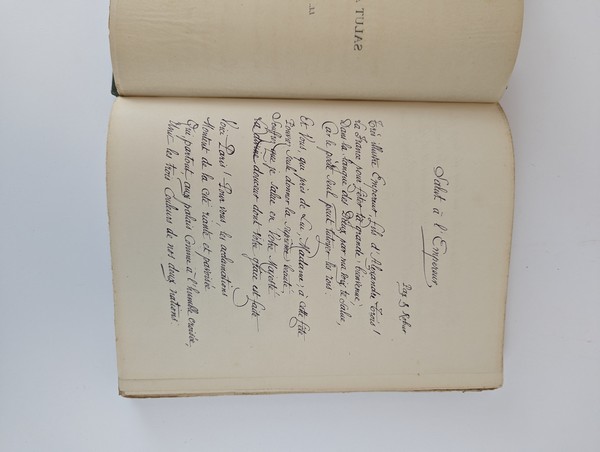 Salut à l'Empereur,
Très illustre Empereur, fils d'Alexandre Trois !
La France pour fêter ta grande bienvenue,
Dans la langue des Dieux par ma voix te salue,
Car le poète seul peut tutoyer les rois.
Et Vous, qui près de Lui, Madame, à cette fête
Pouviez seule donner la suprême beauté,
Souffrez que je salue en Votre Majesté
La divine douceur dont votre grâce est faite.
Voici Paris ! Pour vous, les acclamations
Montent de la cité riante et pavoisée
Qui partout, aux palais comme à l'humble croisée,
Unit les trois couleurs de nos deux nations.